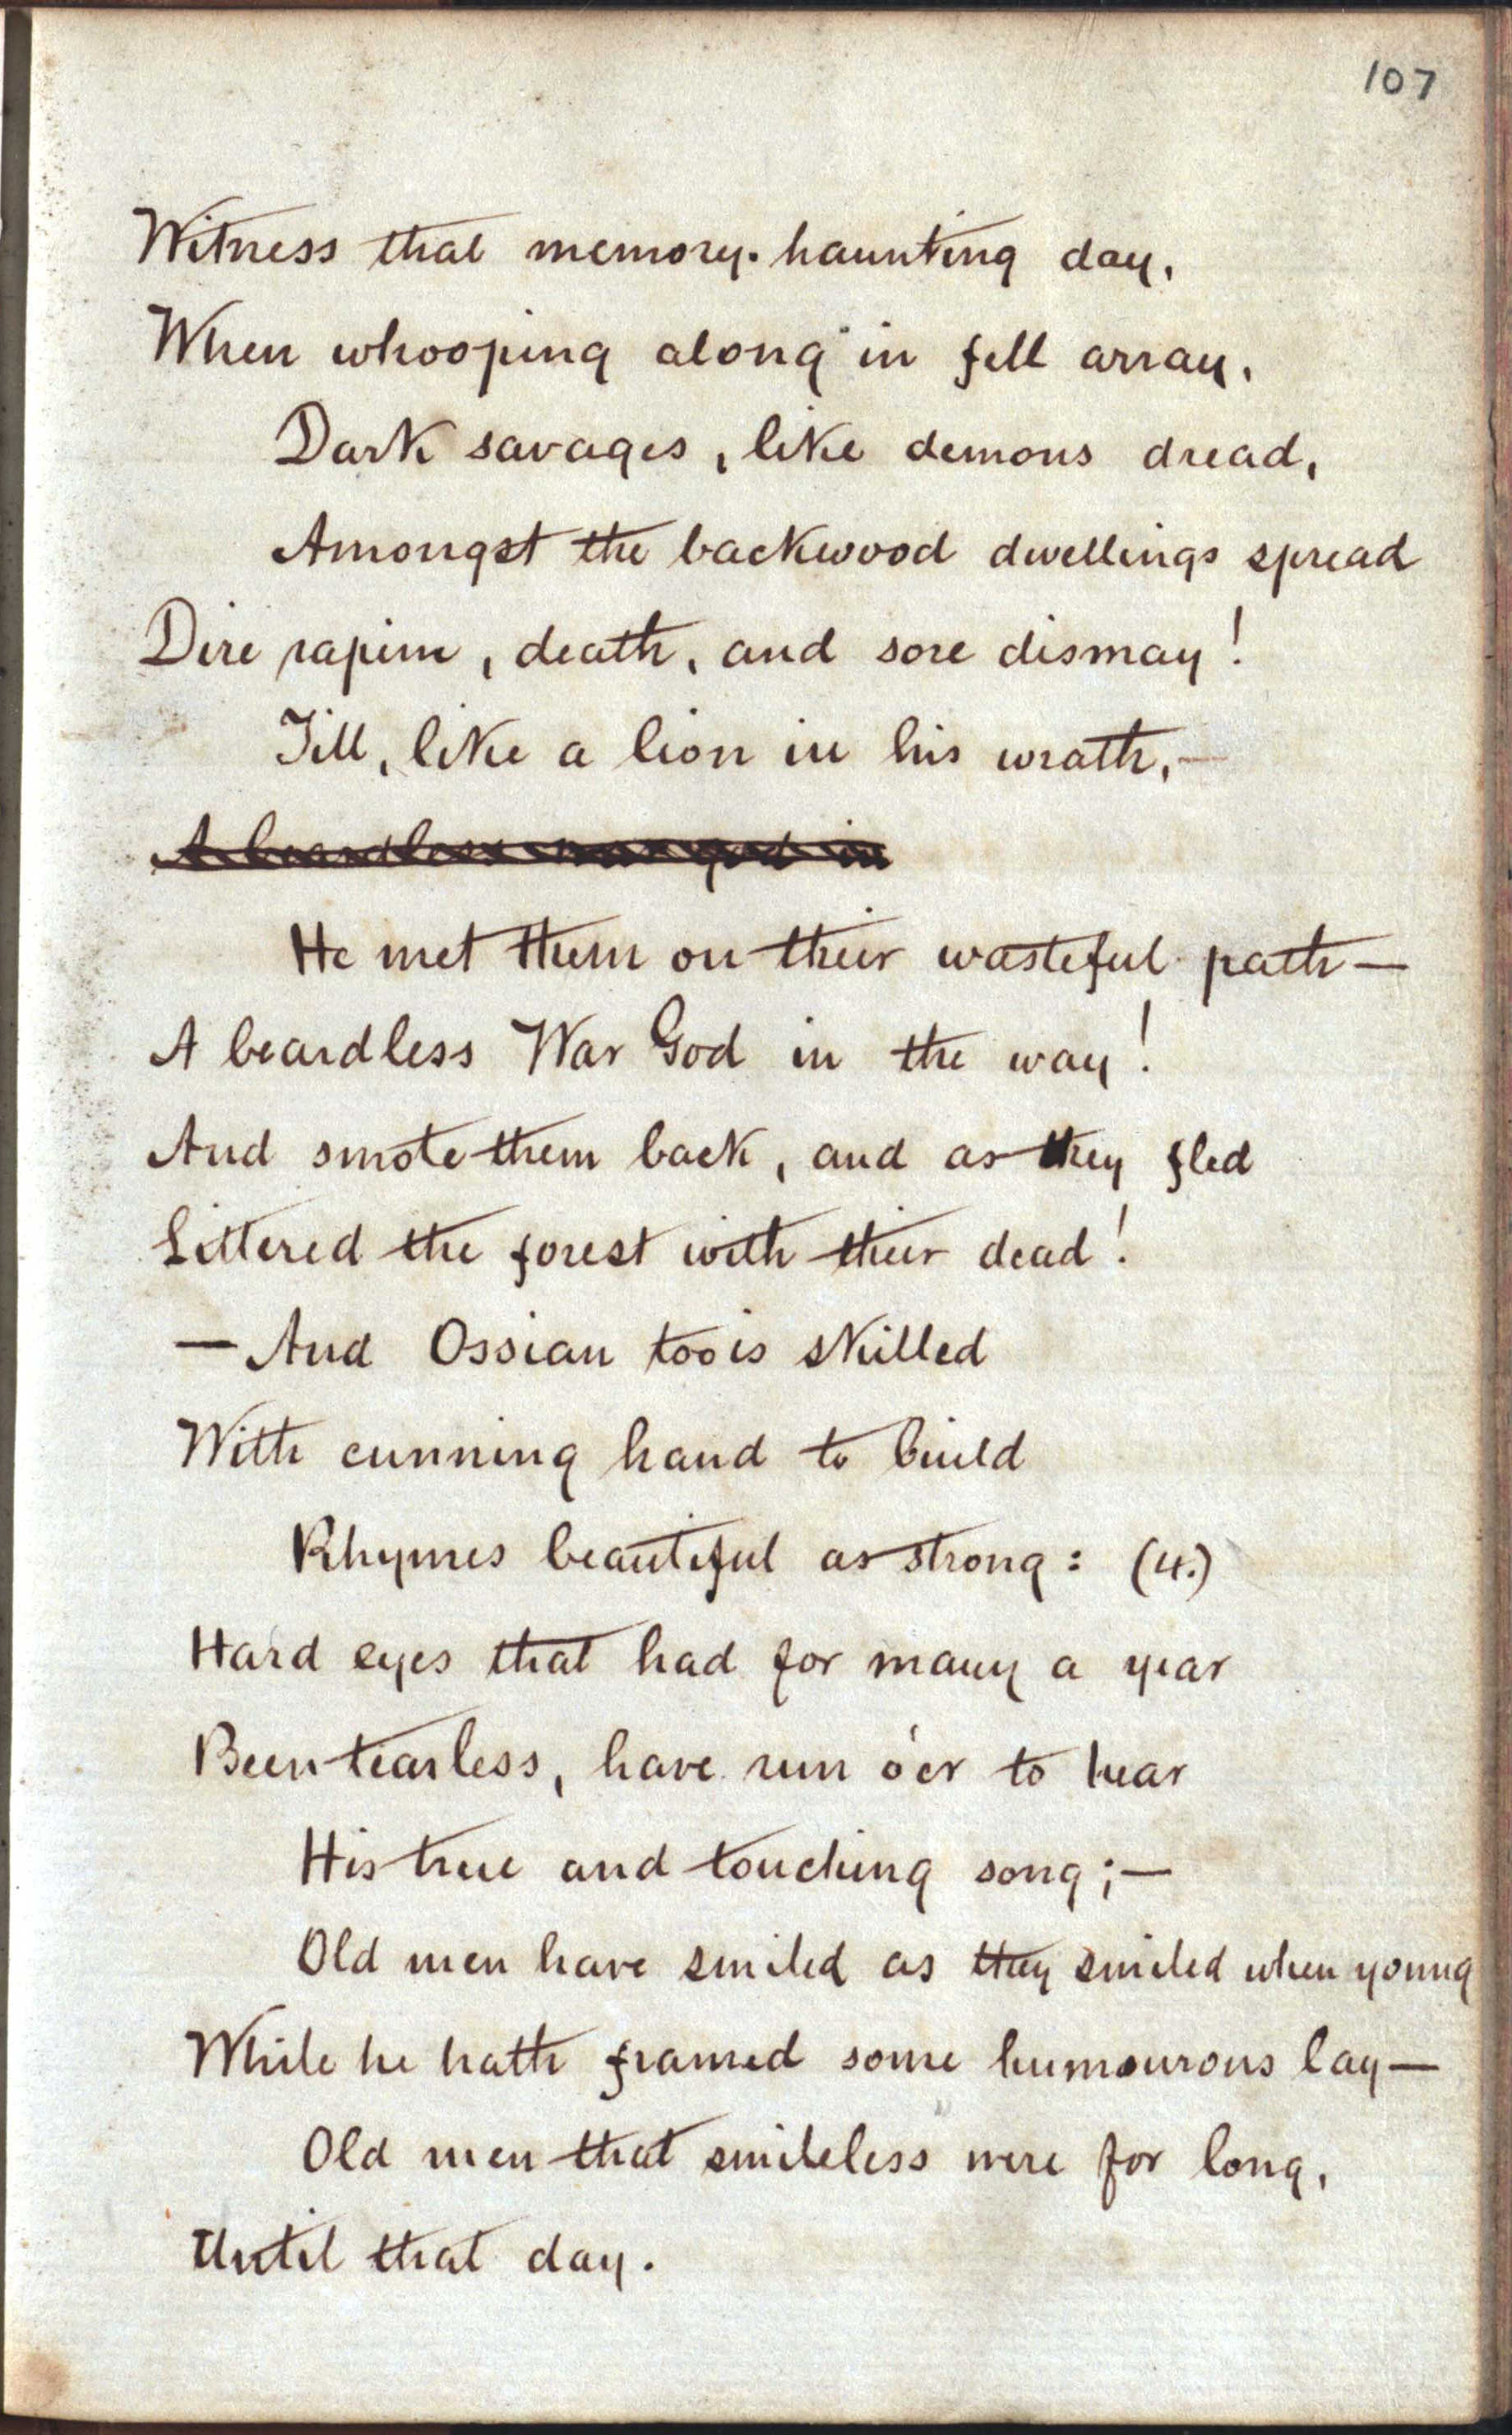 107
Witness that memory-haunting day,
When whooping along in fell array,
Dark savages, like demons dread,
Amongst the backwood dwellings spread
Dire rapine, death, and sore dismay!
Till, like a lion in his wrath,—
A beardless war god in
He met them on their wasteful path—
A beardless War God in the way!
And smote them back, and as they fled
Littered the forest with their dead!
— And Ossian too is skilled
With cunning hand to build
Rhymes beautiful as strong: (4.)
Hard eyes that had for many a year
Been tearless, have run o'er to hear
His true and touching song;—
Old men have smiled as they smiled when young
While he hath framed some humourous lay—
Old men that smileless were for long,
Until that day.